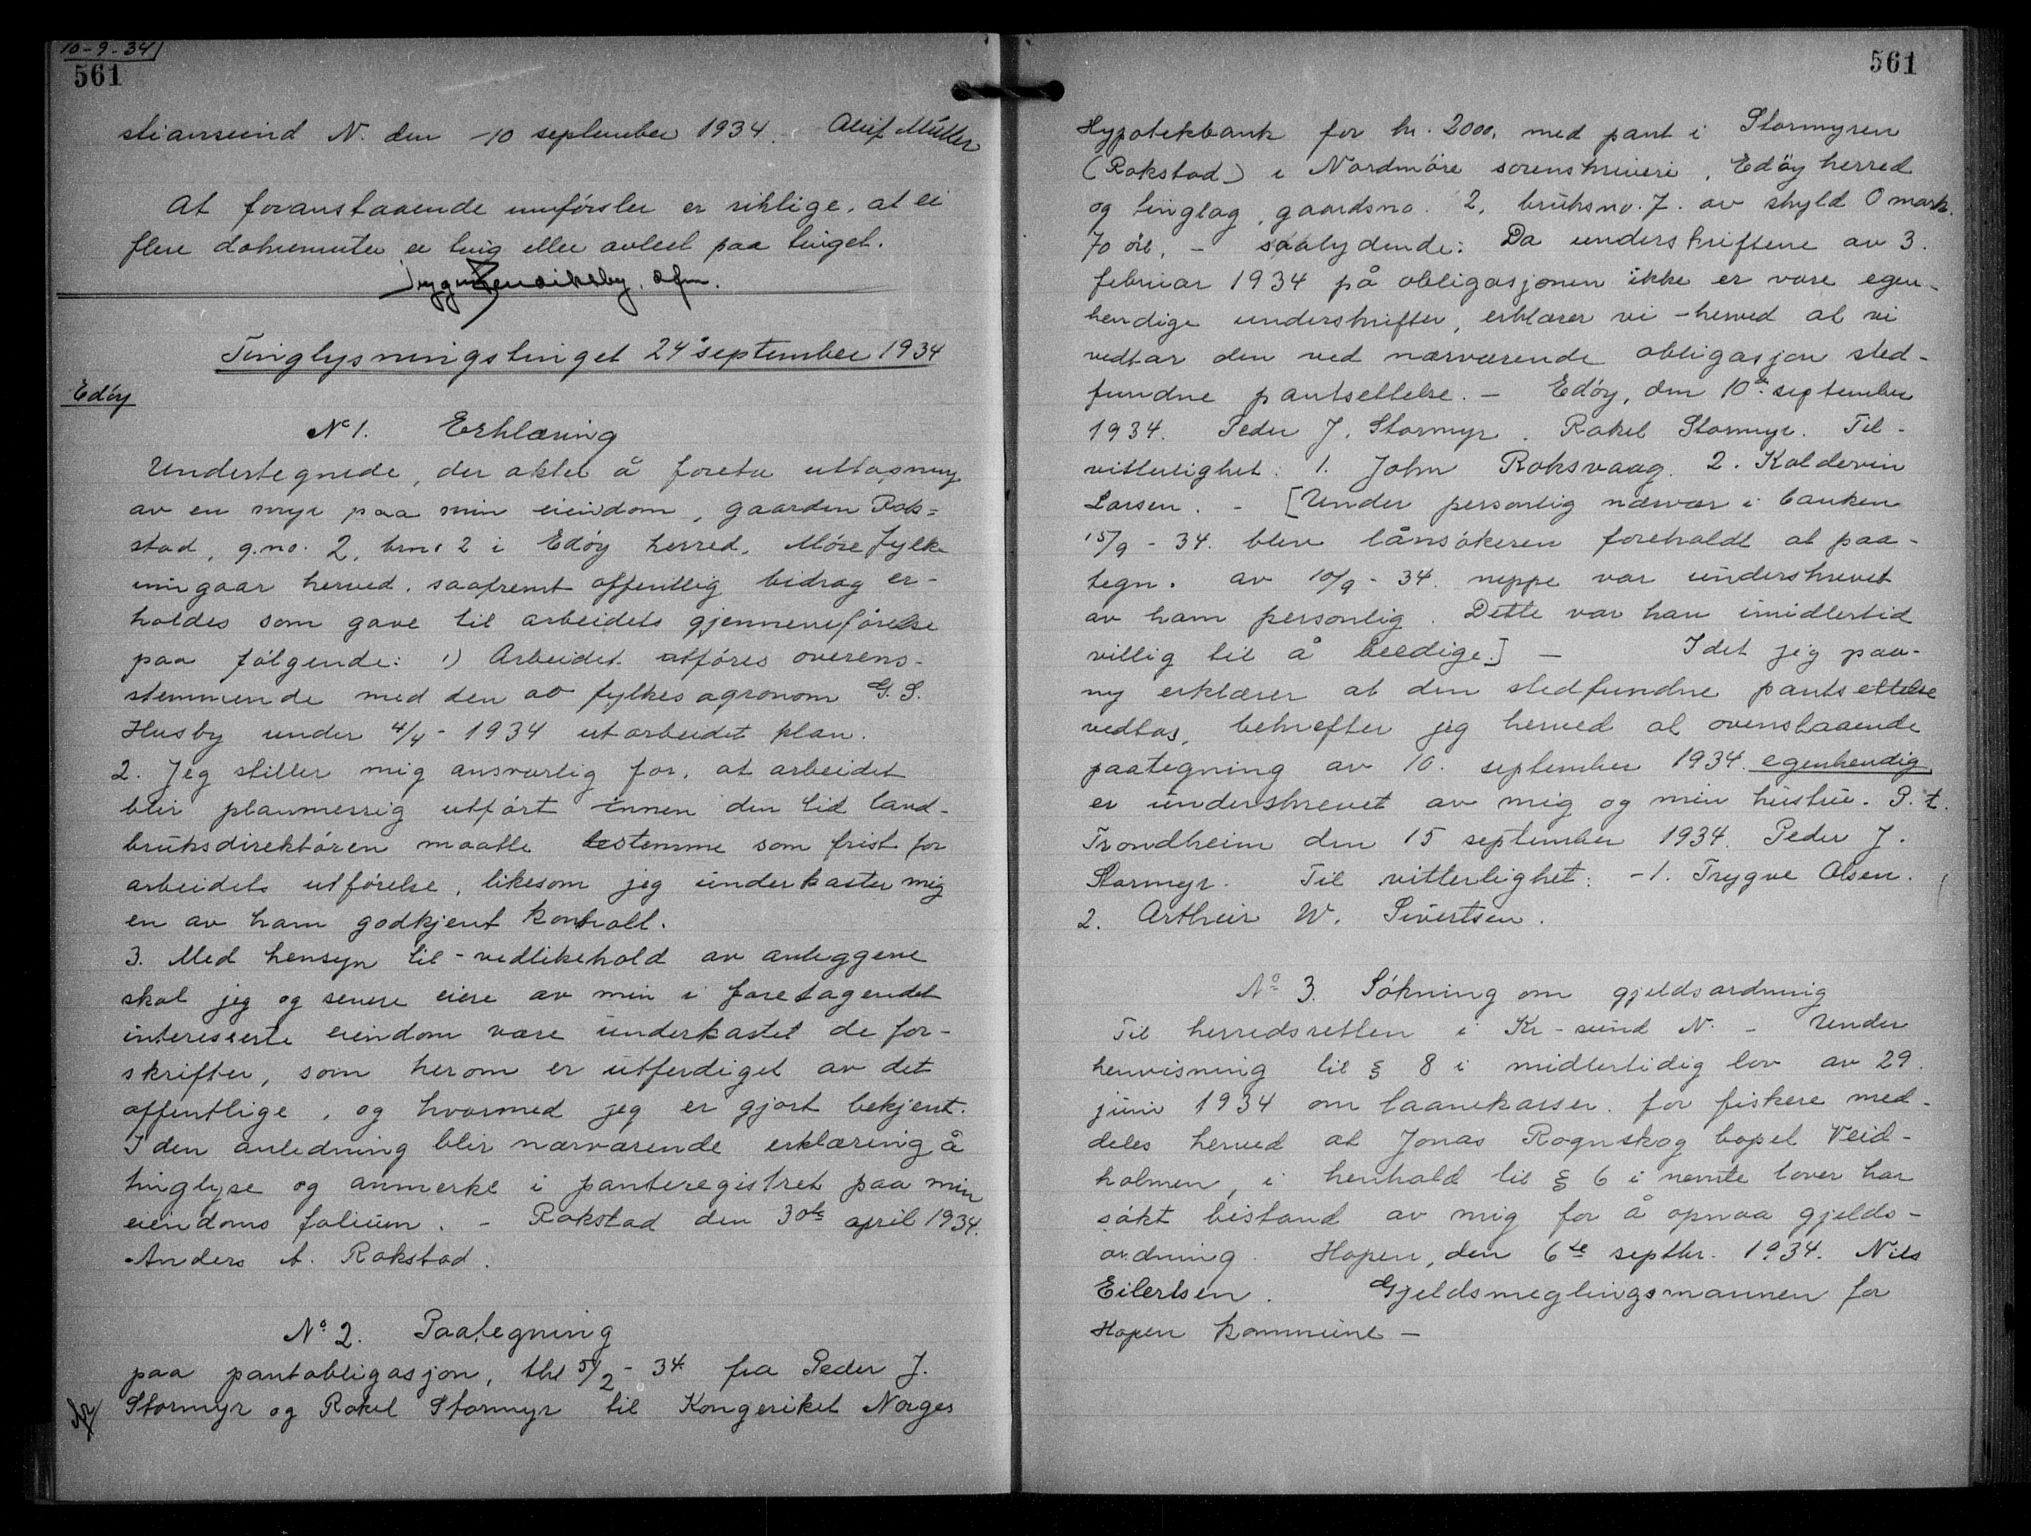 10-9-34
561
stiansund N. den 10 september 1934. Alif Müller
At foranstaaende innførsler er riktige, at ei
flere dokumenter er ting eller avlest paa tinget.
Tinglysningstinget 24 september 1934
Edøy
No 1. Erklæring
Undertegnede, der aktet å foreta uttapning
av en myr paa min eiendom, gaarden Rok=
stad, g.no. 2, brno 2 i Edøy herred, Møre fylke
inngaar herved, saafremt offentlig bidrag er-
holdes som gave til arbeidets gjennemførelse
paa følgende: 1) Arbeidet utføres overens-
stemmende med den av fylkesagronom G. S.
Husby under 4/4 - 1934 utarbeidet plan.
2. Jeg stiller mig ansvarlig for, at arbeidet
blir planmessig utført innen den tid land-
bruksdirektøren maatte bestemme som frist for
arbeidets utførelse, likesom jeg underkaster mig
en av ham godkjent kontroll.
3. Med hensyn til vedlikehold av anleggene
skal jeg og senere eiere av min i foretagendet
interesserte eiendom være underkastet de for-
skrifter, som herom er utferdiget av det
offentlige, og hvormed jeg er gjort bekjent.
I den anledning blir nærværende erklæring å
tinglyse og anmerke i panteregistret paa min
eiendoms folium. - Rokstad den 30te april 1934.
Anders A. Rokstad.
No 2. Paategning
paa pantobligasjon, thl 5/2 - 34 fra Peder J.
Stormyr og Rakel Stormyr til Kongeriket Norges
561
Hypotekbank for kr. 2000, med pant i Stormyren
(Rokstad) i Nordmøre sorenskriveri, Edøy herred
og tinglag, gaardsno. 2, bruksno. 7. av skyld 0 mark
70 øre, - saalydende: Da underskriftene av 3.
februar 1934 på obligasjonen ikke er våre egen-
hendige underskrifter, erklærer vi herved at vi
vedtar den ved nærværende obligasjon sted-
fundne pantsettelse. - Edøy, den 10de september
1934. Peder J. Stormyr. Rakel Stormyr. Til
vitterlighet: 1. John Roksvaag. 2. Kaldervin
Larsen. - [Under personlig nærvær i banken
15/9 - 34. blev lånsøkeren foreholdt at paa-
tegn. av 10/9 - 34. neppe var underskrevet
av ham personlig. Dette var han imidlertid
villig til å beedige.] - Idet jeg paa-
ny erklærer at den stedfundne pantsettelse
vedtas, bekrefter jeg herved at ovenstaaende
paategning av 10. september 1934 egenhendig
er underskrevet av mig og min hustru. P. t.
Trondheim den 15 september 1934. Peder J.
Stormyr. Til vitterlighet: 1. Trygve Olsen.
2. Arthur W. Sivertsen.
No 3. Søkning om gjeldsordning
Til herredsretten i Kr-sund N. - Under
henvisning til § 8 i midlertidig lov av 29.
juni 1934 om laanekasser for fiskere med-
deles herved at Jonas Rognskog bopel Veid-
holmen, i henhold til § 6 i nevnte lover har
søkt bistand av mig for å opnaa gjelds-
ordning. Hopen, den 6te septbr. 1934. Nils
Eilertsen. Gjeldsmeglingsmannen for
Hopen kommune -